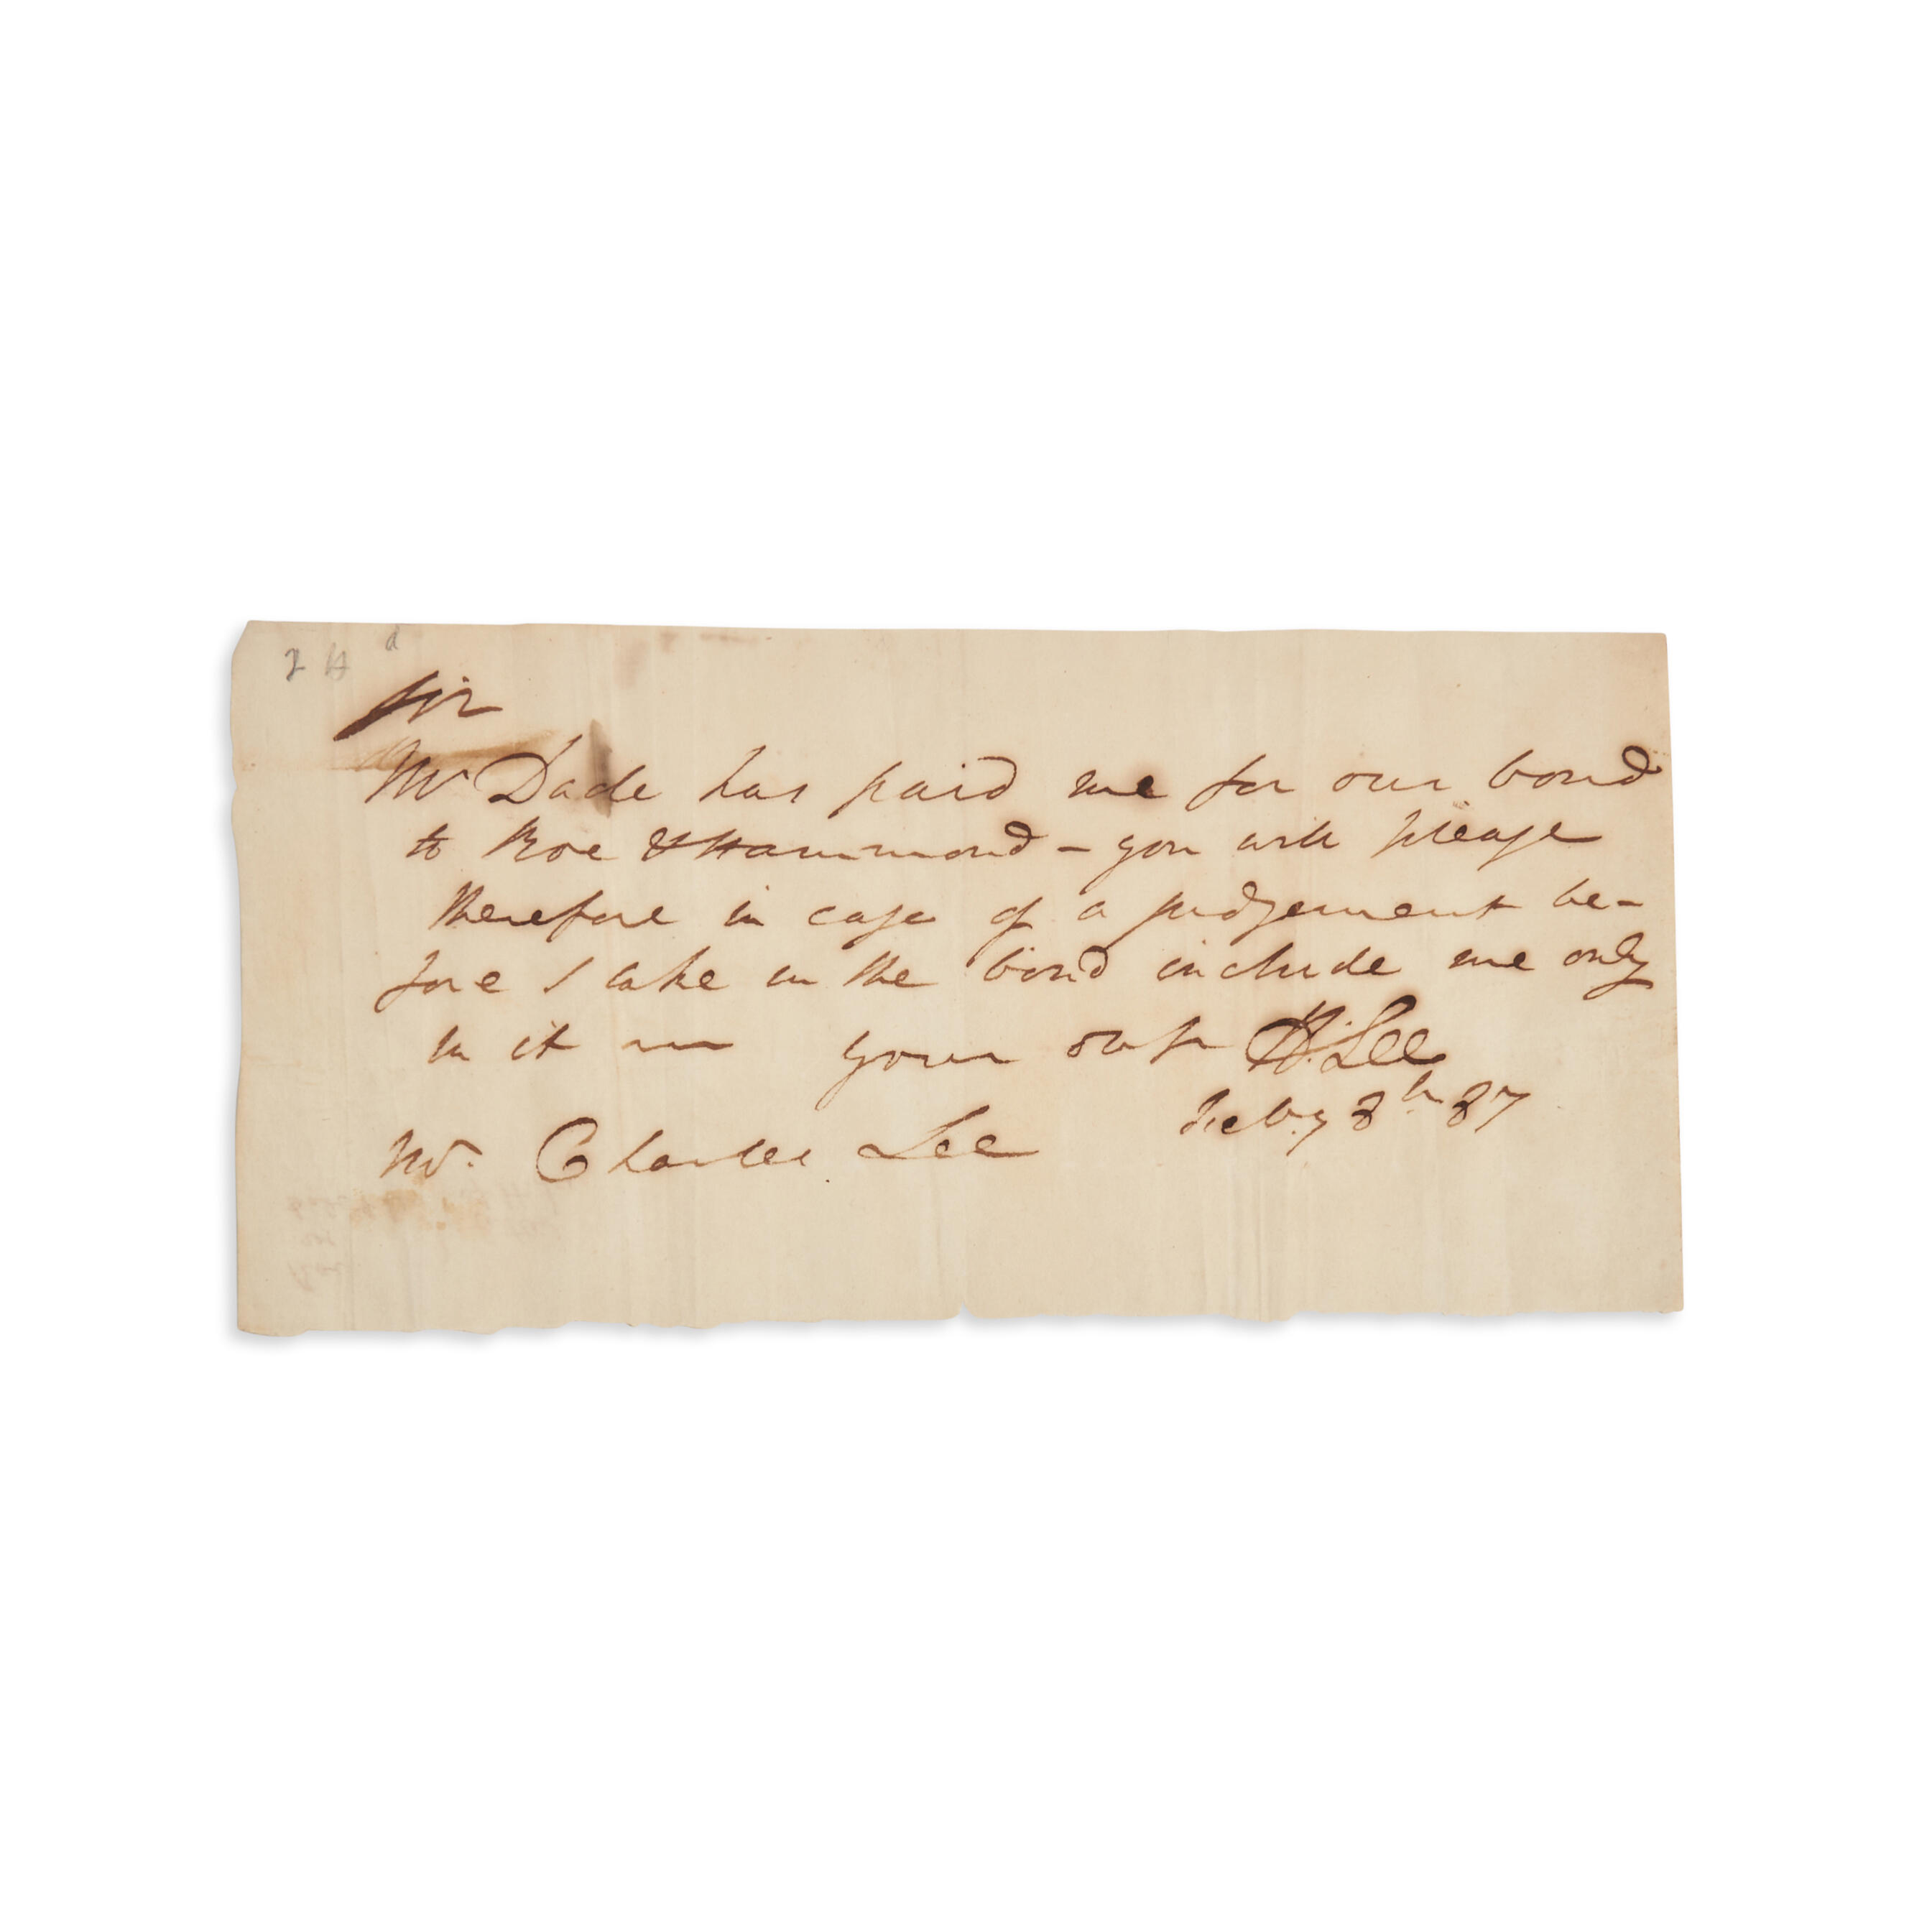 Sir
Mr Dade has paid me for our bond
to Roe & Hammond - you will please
therefore in case of a judgement be-
fore I take in the bond include me only
in it your H. Lee
Feby 8th 87
Mr. Charles Lee